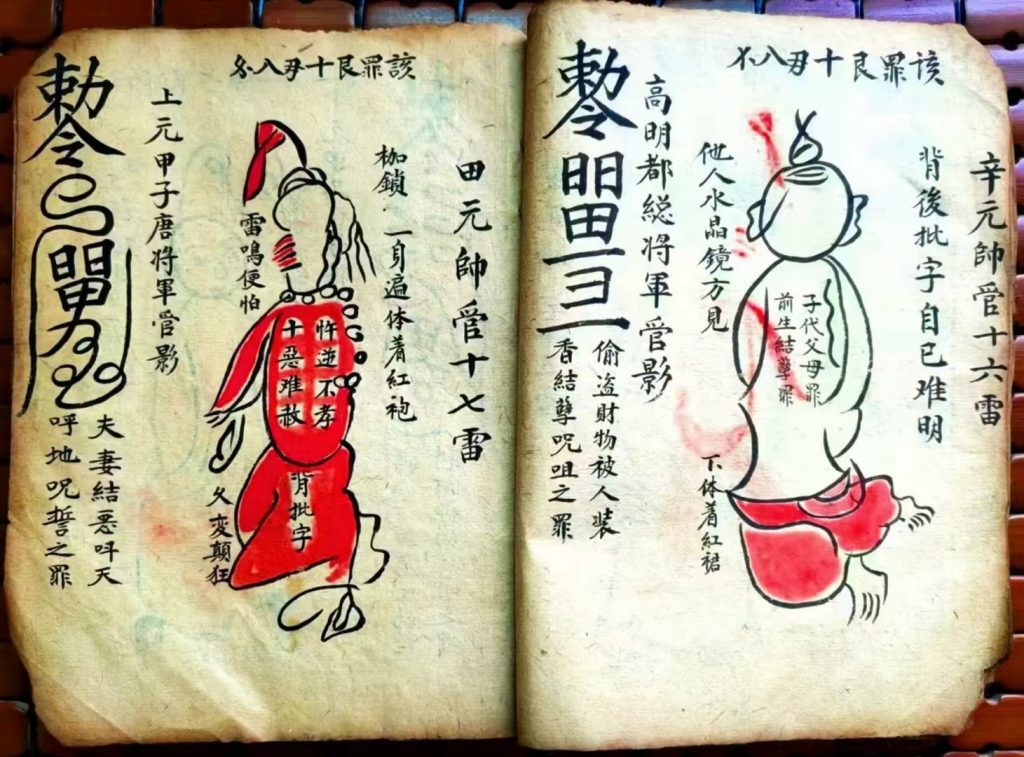 該罪艮十八
辛元帥管十六雷
背後批字自已難明
子代父母罪
前生結孽罪
他人水晶鏡方見
下体着紅裙
高明都総将軍管影
偷盗財物被人装
香結孽咒咀之罪
勅令
該罪艮十八
田元帥管十七雷
枷鎖一身遍体着紅袍
忤逆不孝
十惡难赦
背批字
雷鳴便怕
久変顛狂
上元甲子唐將軍管影
夫妻結悪呼天
呼地咒誓之罪
勅令